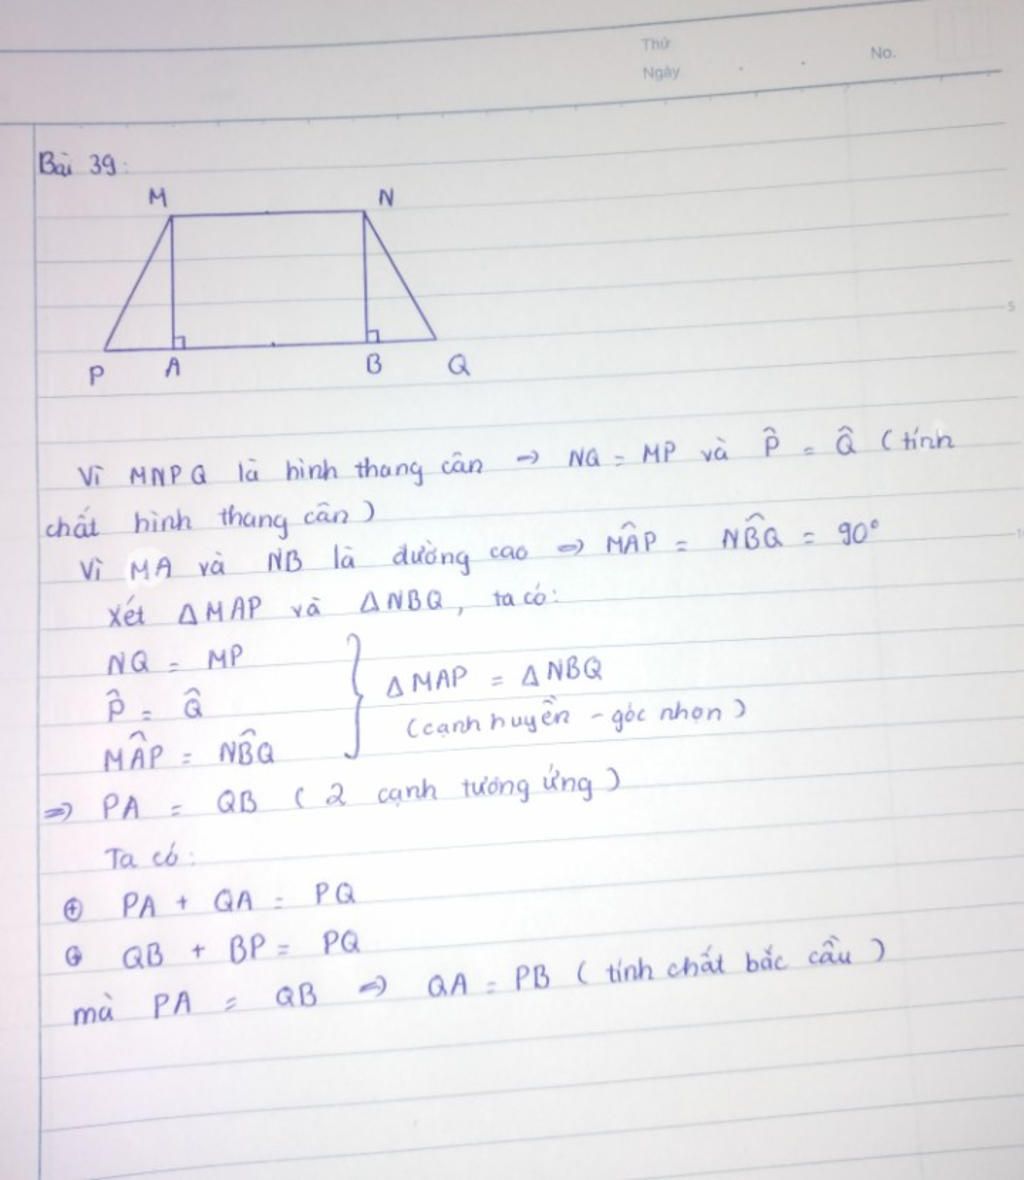 Thứ
Ngày
No.
Bài 39:
M N
P A B Q
5
Vì MNPQ là hình thang cân → NQ = MP và P̂ = Q̂ (tính
chất hình thang cân)
Vì MA và NB là đường cao => MÂP = NB̂Q = 90°
Xét ΔMAP và ΔNBQ, ta có:
NQ = MP
P̂ = Q̂
MÂP = NB̂Q
ΔMAP = ΔNBQ
(cạnh huyền - góc nhọn)
=> PA = QB (2 cạnh tương ứng)
Ta có:
⊕ PA + QA = PQ
⊕ QB + BP = PQ
mà PA = QB => QA = PB (tính chất bắc cầu)